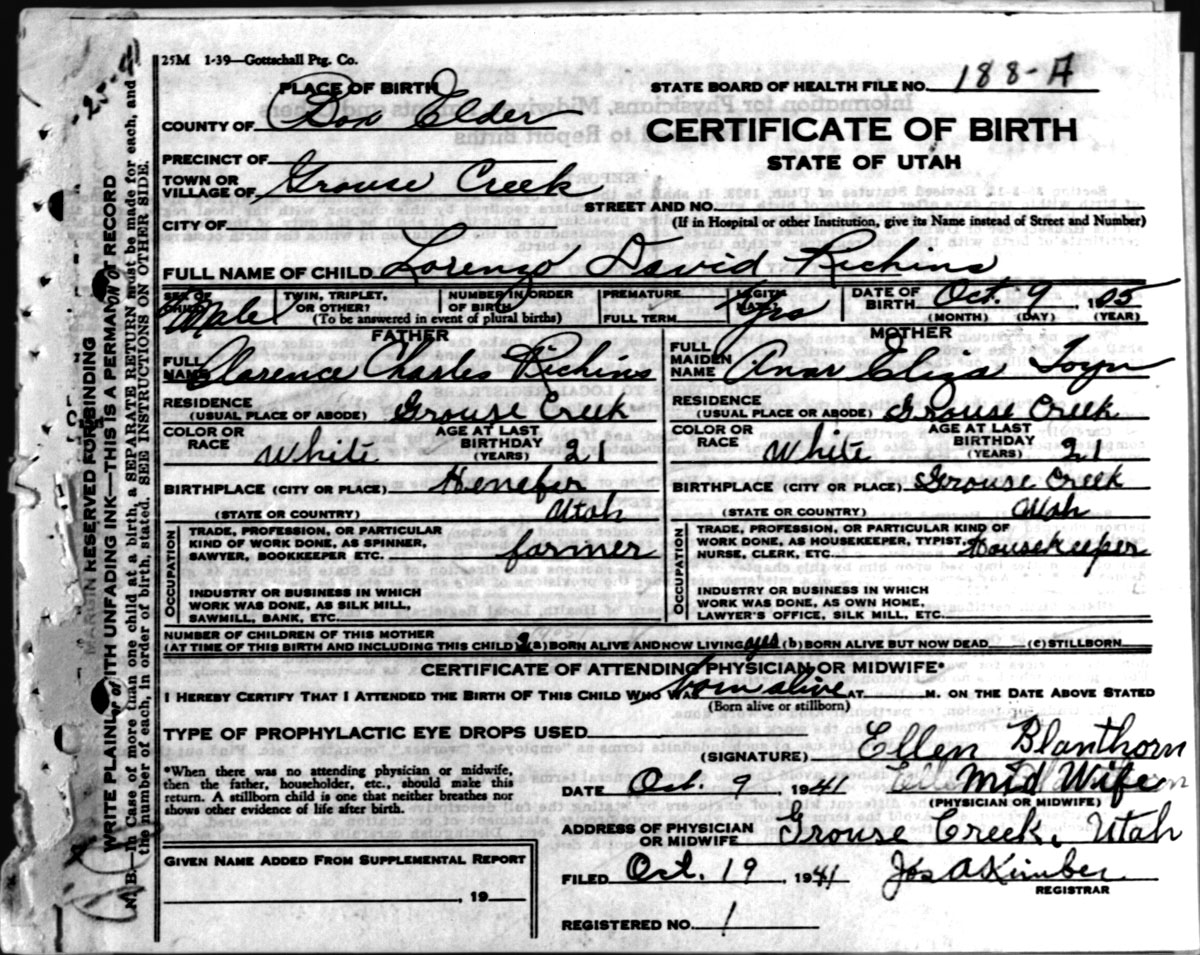 25M 1-39—Gottschall Ptg. Co.
PLACE OF BIRTH
STATE BOARD OF HEALTH FILE NO. 188-A
COUNTY OF Box Elder
CERTIFICATE OF BIRTH
STATE OF UTAH
PRECINCT OF
TOWN OR VILLAGE OF Grouse Creek
STREET AND NO.
(If in Hospital or other Institution, give its Name instead of Street and Number)
CITY OF
FULL NAME OF CHILD Lorenzo David Richins
SEX OF CHILD Male
TWIN, TRIPLET, OR OTHER?
NUMBER IN ORDER OF BIRTH
(To be answered in event of plural births)
PREMATURE
FULL TERM
DATE OF BIRTH Oct. 9, 1905
(MONTH) (DAY) (YEAR)
FATHER
FULL NAME Clarence Charles Richins
RESIDENCE (USUAL PLACE OF ABODE) Grouse Creek
COLOR OR RACE White
AGE AT LAST BIRTHDAY (YEARS) 21
BIRTHPLACE (CITY OR PLACE) Henefer
(STATE OR COUNTRY) Utah
OCCUPATION
TRADE, PROFESSION, OR PARTICULAR KIND OF WORK DONE, AS SPINNER, SAWYER, BOOKKEEPER ETC. farmer
INDUSTRY OR BUSINESS IN WHICH WORK WAS DONE, AS SILK MILL, SAWMILL, BANK, ETC.
MOTHER
FULL MAIDEN NAME Anar Eliza Toyn
RESIDENCE (USUAL PLACE OR ABODE) Grouse Creek
COLOR OR RACE White
AGE AT LAST BIRTHDAY (YEARS) 21
BIRTHPLACE (CITY OR PLACE) Grouse Creek
(STATE OR COUNTRY) Utah
OCCUPATION
TRADE, PROFESSION, OR PARTICULAR KIND OF WORK DONE, AS HOUSEKEEPER, TYPIST, NURSE, CLERK, ETC. Housekeeper
INDUSTRY OR BUSINESS IN WHICH WORK WAS DONE, AS OWN HOME, LAWYER'S OFFICE, SILK MILL, ETC.
NUMBER OF CHILDREN OF THIS MOTHER
(AT TIME OF THIS BIRTH AND INCLUDING THIS CHILD) (a) BORN ALIVE AND NOW LIVING yes (b) BORN ALIVE BUT NOW DEAD (c) STILLBORN
CERTIFICATE OF ATTENDING PHYSICIAN OR MIDWIFE*
I HEREBY CERTIFY THAT I ATTENDED THE BIRTH OF THIS CHILD WHO WAS born alive AT M. ON THE DATE ABOVE STATED
(Born alive or stillborn)
TYPE OF PROPHYLACTIC EYE DROPS USED
(SIGNATURE) Ellen Blanthorn
*When there was no attending physician or midwife,
then the father, householder, etc., should make this
return. A stillborn child is one that neither breathes nor
shows other evidence of life after birth.
DATE Oct. 9, 1941 Mid Wife
(PHYSICIAN OR MIDWIFE)
ADDRESS OF PHYSICIAN OR MIDWIFE Grouse Creek, Utah
GIVEN NAME ADDED FROM SUPPLEMENTAL REPORT
, 19
FILED Oct. 19, 1941 Jos A Kimber
REGISTRAR
REGISTERED NO. 1
MARGIN RESERVED FOR BINDING
WRITE PLAINLY WITH UNFADING INK—THIS IS A PERMANENT RECORD
N. B.—In Case of more than one child at a birth, a SEPARATE RETURN must be made for each, and
the number of each, in order of birth, stated. SEE INSTRUCTIONS ON OTHER SIDE.